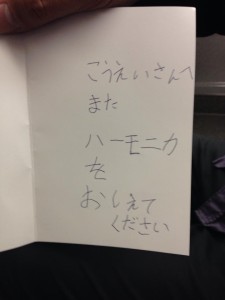 こうえいさんへ
また
ハーモニカ
を
おしえて
ください